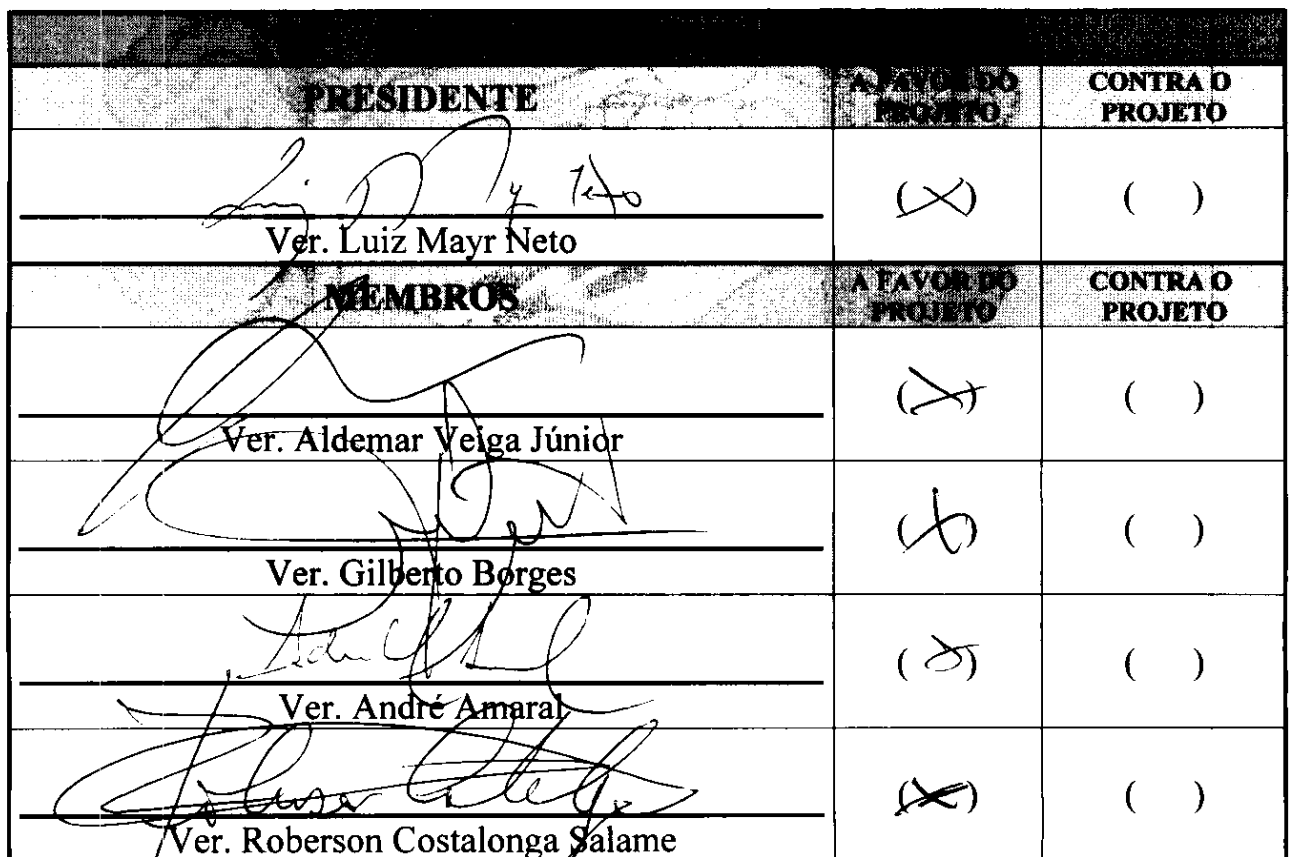 PRESIDENTE
A FAVOR DO PROJETO
CONTRA O PROJETO
(X)
( )
Ver. Luiz Mayr Neto
MEMBROS
A FAVOR DO PROJETO
CONTRA O PROJETO
(X)
( )
Ver. Aldemar Veiga Júnior
(X)
( )
Ver. Gilberto Borges
(X)
( )
Ver. André Amaral
(X)
( )
Ver. Roberson Costalonga Salame